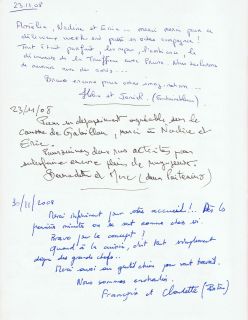 23.11.08
Nadine et Eric ... merci pour ce
délicieux week-end passé en votre compagnie !
Tout était parfait, les repas, l'ambiance, la
découverte de la Truffière avec Prune. Nous
de revenir avec des amis ...
Bravo encore pour votre imagination ...
et Daniel.
23/11/08
Pour un dépaysement agréable sur le
causse de Gabillou, merci à Nadine et
Eric.
Poursuivez dans vos activités pour
satisfaire encore plein de voyageurs.
Bernadette et Marc (deux Poitevins)
30/11/2008
Merci infiniment pour votre accueil !.. Dès les
premières minutes on se sent comme chez soi.
Bravo pour le concept !
Quand à la cuisine, c'est tout simplement
digne des grands chefs..
Merci aussi au petit chien pour son travail.
Nous sommes enchantés.
François et Claudette